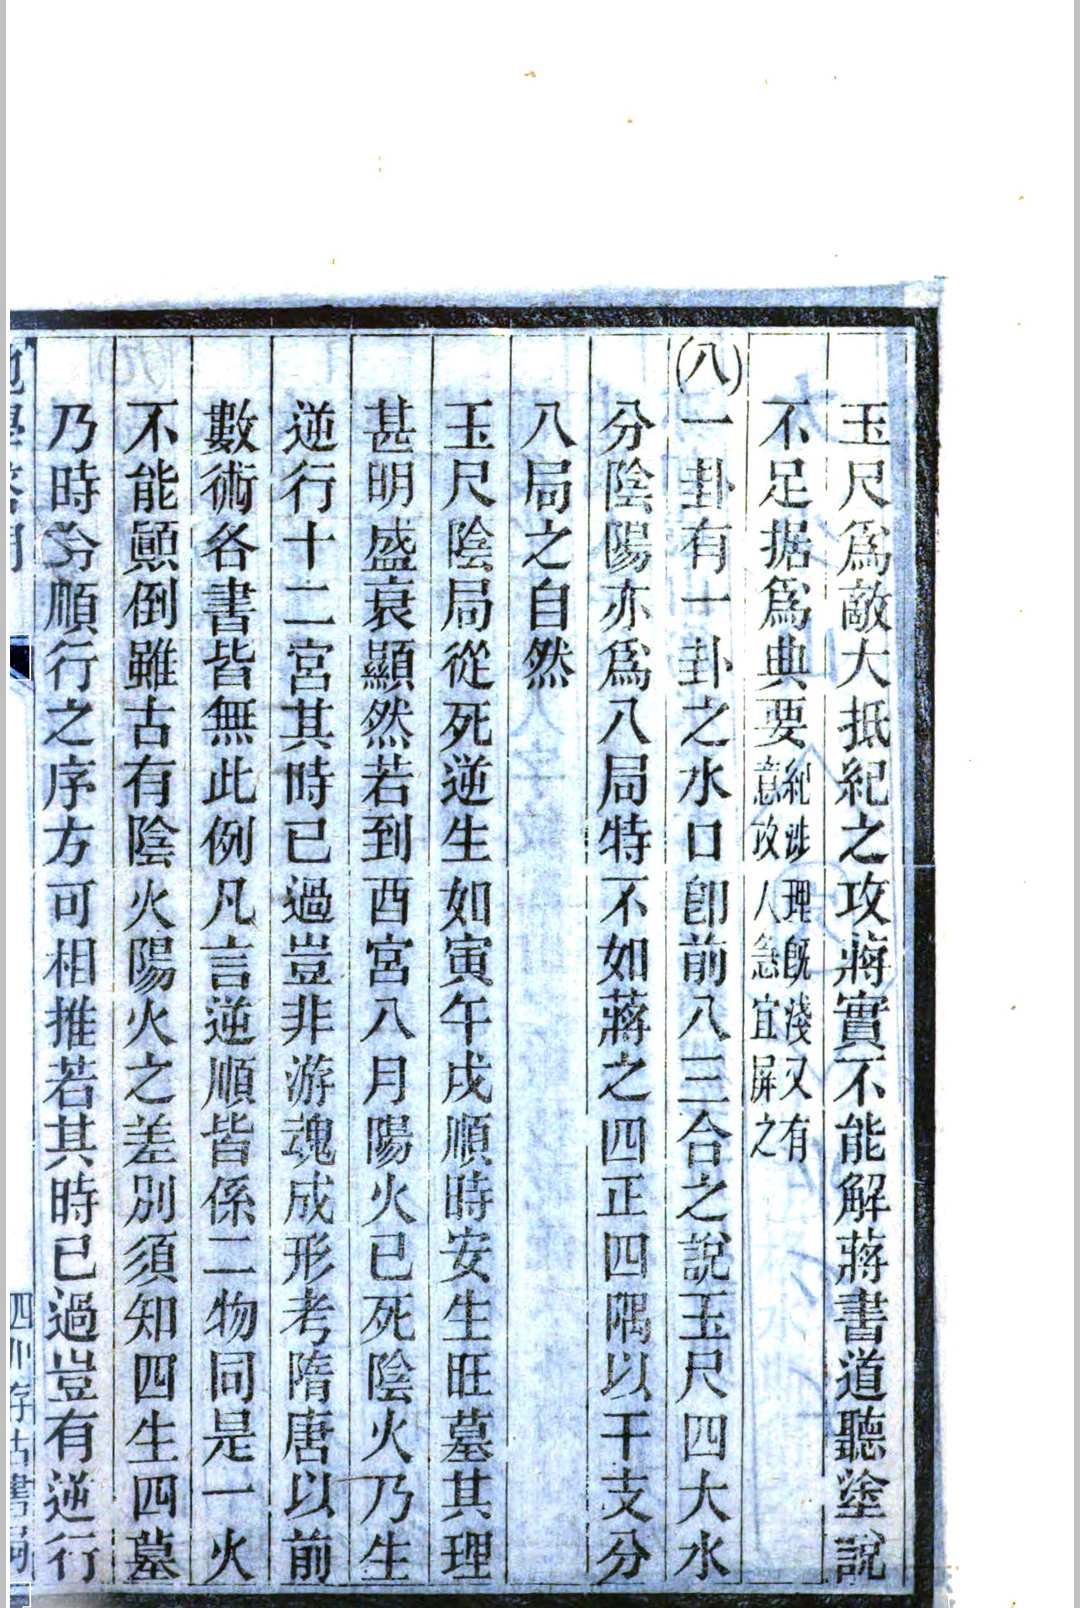 玉尺爲敵大抵紀之攻蔣實不能解蔣書道聽塗說
不足據爲典要紀㳙理旣淺又有意攻人急宜屏之
(八)一卦有一卦之水口卽前八三合之說玉尺四大水
分陰陽亦爲八局特不如蔣之四正四隅以干支分
八局之自然
玉尺陰局從死逆生如寅午戌順時安生旺墓其理
甚明盛衰顯然若到酉宮八月陽火已死陰火乃生
逆行十二宮其時已過豈非游魂成形考隋唐以前
數術各書皆無此例凡言逆順皆係二物同是一火
不能顚倒雖古有陰火陽火之差別須知四生四墓
乃時令順行之序方可相推若其時已過豈有逆行
四川存古書局